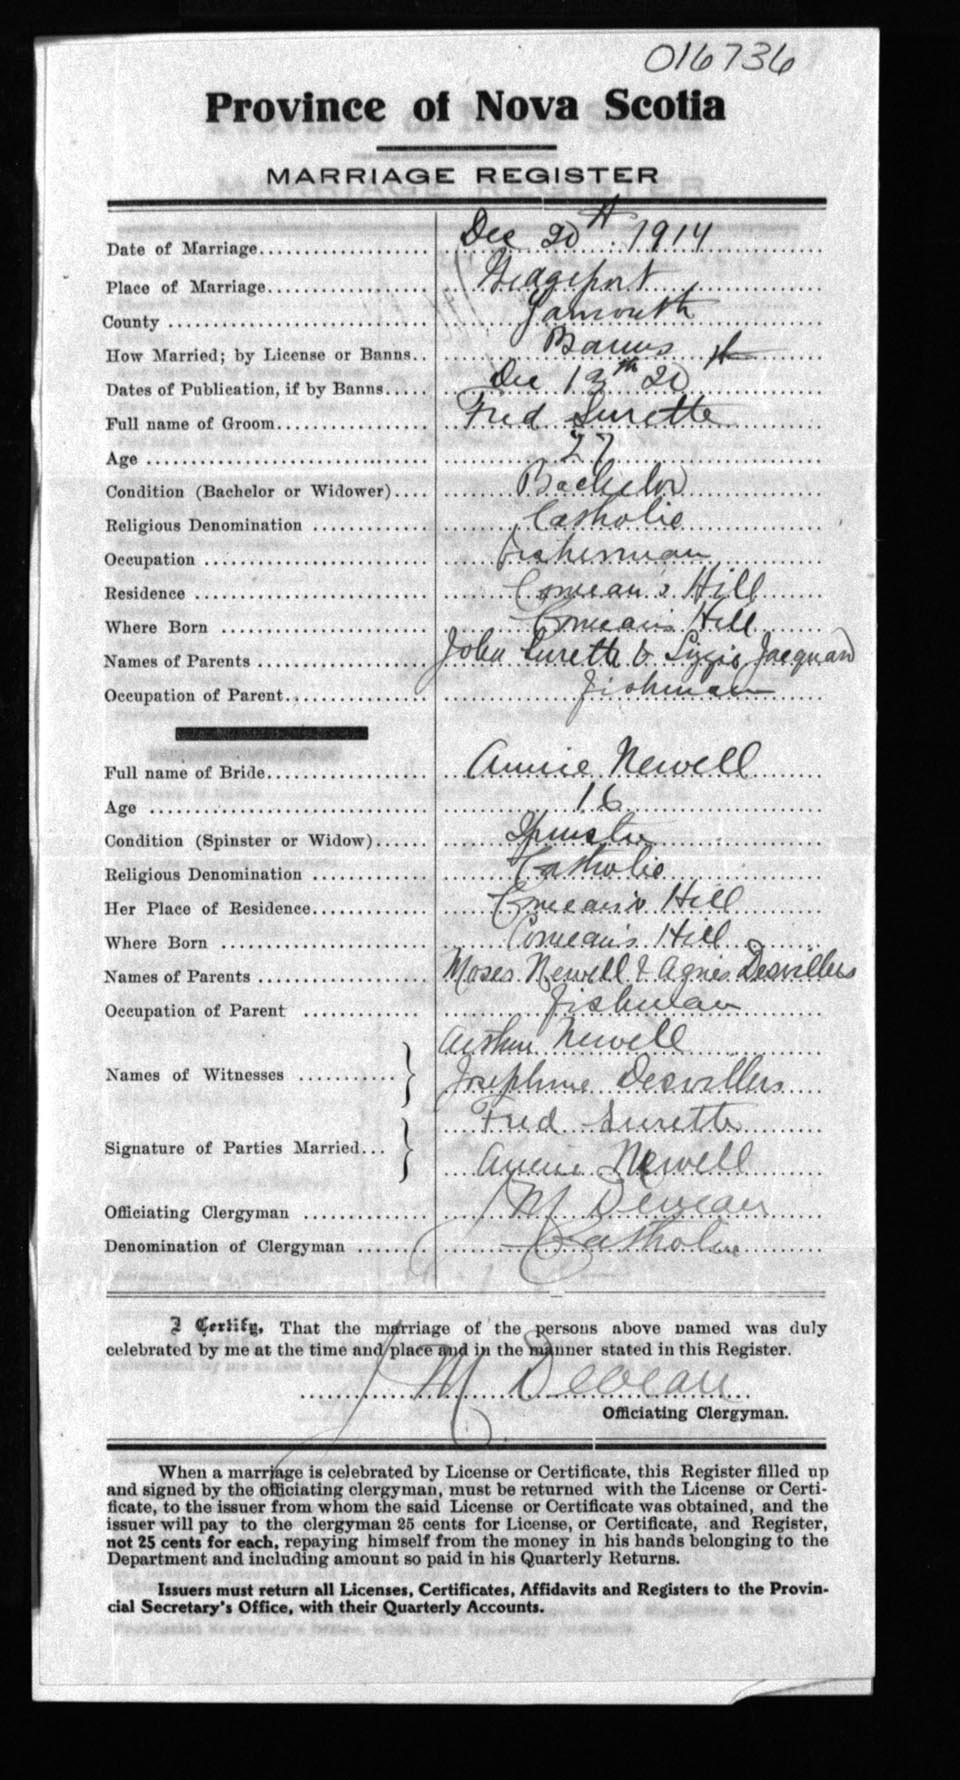 016736
Province of Nova Scotia
MARRIAGE REGISTER
Date of Marriage.................... Dec 20th 1914
Place of Marriage................... Wedgeport
County .............................. Yarmouth
How Married; by License or Banns.. Banns
Dates of Publication, if by Banns..... Dec 13th 20th
Full name of Groom.................. Fred Surette
Age ................................. 27
Condition (Bachelor or Widower).... Bachelor
Religious Denomination ............. Catholic
Occupation .......................... Fisherman
Residence ........................... Comeau's Hill
Where Born ......................... Comeau's Hill
Names of Parents ................... John Surette & Lizzie Jacquard
Occupation of Parent................. Fishman
Full name of Bride................... Annie Newell
Age ................................. 16
Condition (Spinster or Widow)...... Spinster
Religious Denomination ............. Catholic
Her Place of Residence.............. Comeau's Hill
Where Born ......................... Comeau's Hill
Names of Parents ................... Moses Newell & Agnes Desvillers
Occupation of Parent .............. Fishman
Arthur Newell
Names of Witnesses ...........
Josephine Desvillers
Fred Surette
Signature of Parties Married...
Annie Newell
Officiating Clergyman .............. M Deveau
Denomination of Clergyman ........ Catholic
I Certify, That the marriage of the persons above named was duly
celebrated by me at the time and place and in the manner stated in this Register.
M Deveau
Officiating Clergyman.
When a marriage is celebrated by License or Certificate, this Register filled up
and signed by the officiating clergyman, must be returned with the License or Certi-
ficate, to the issuer from whom the said License or Certificate was obtained, and the
issuer will pay to the clergyman 25 cents for License, or Certificate, and Register,
not 25 cents for each, repaying himself from the money in his hands belonging to the
Department and including amount so paid in his Quarterly Returns.
Issuers must return all Licenses, Certificates, Affidavits and Registers to the Provin-
cial Secretary's Office, with their Quarterly Accounts.